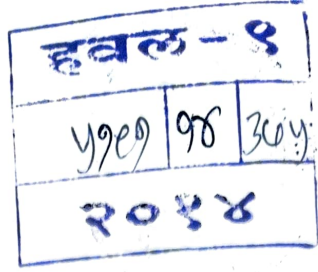 हवल - ९
५१९१ १४ ३७५
२०१४